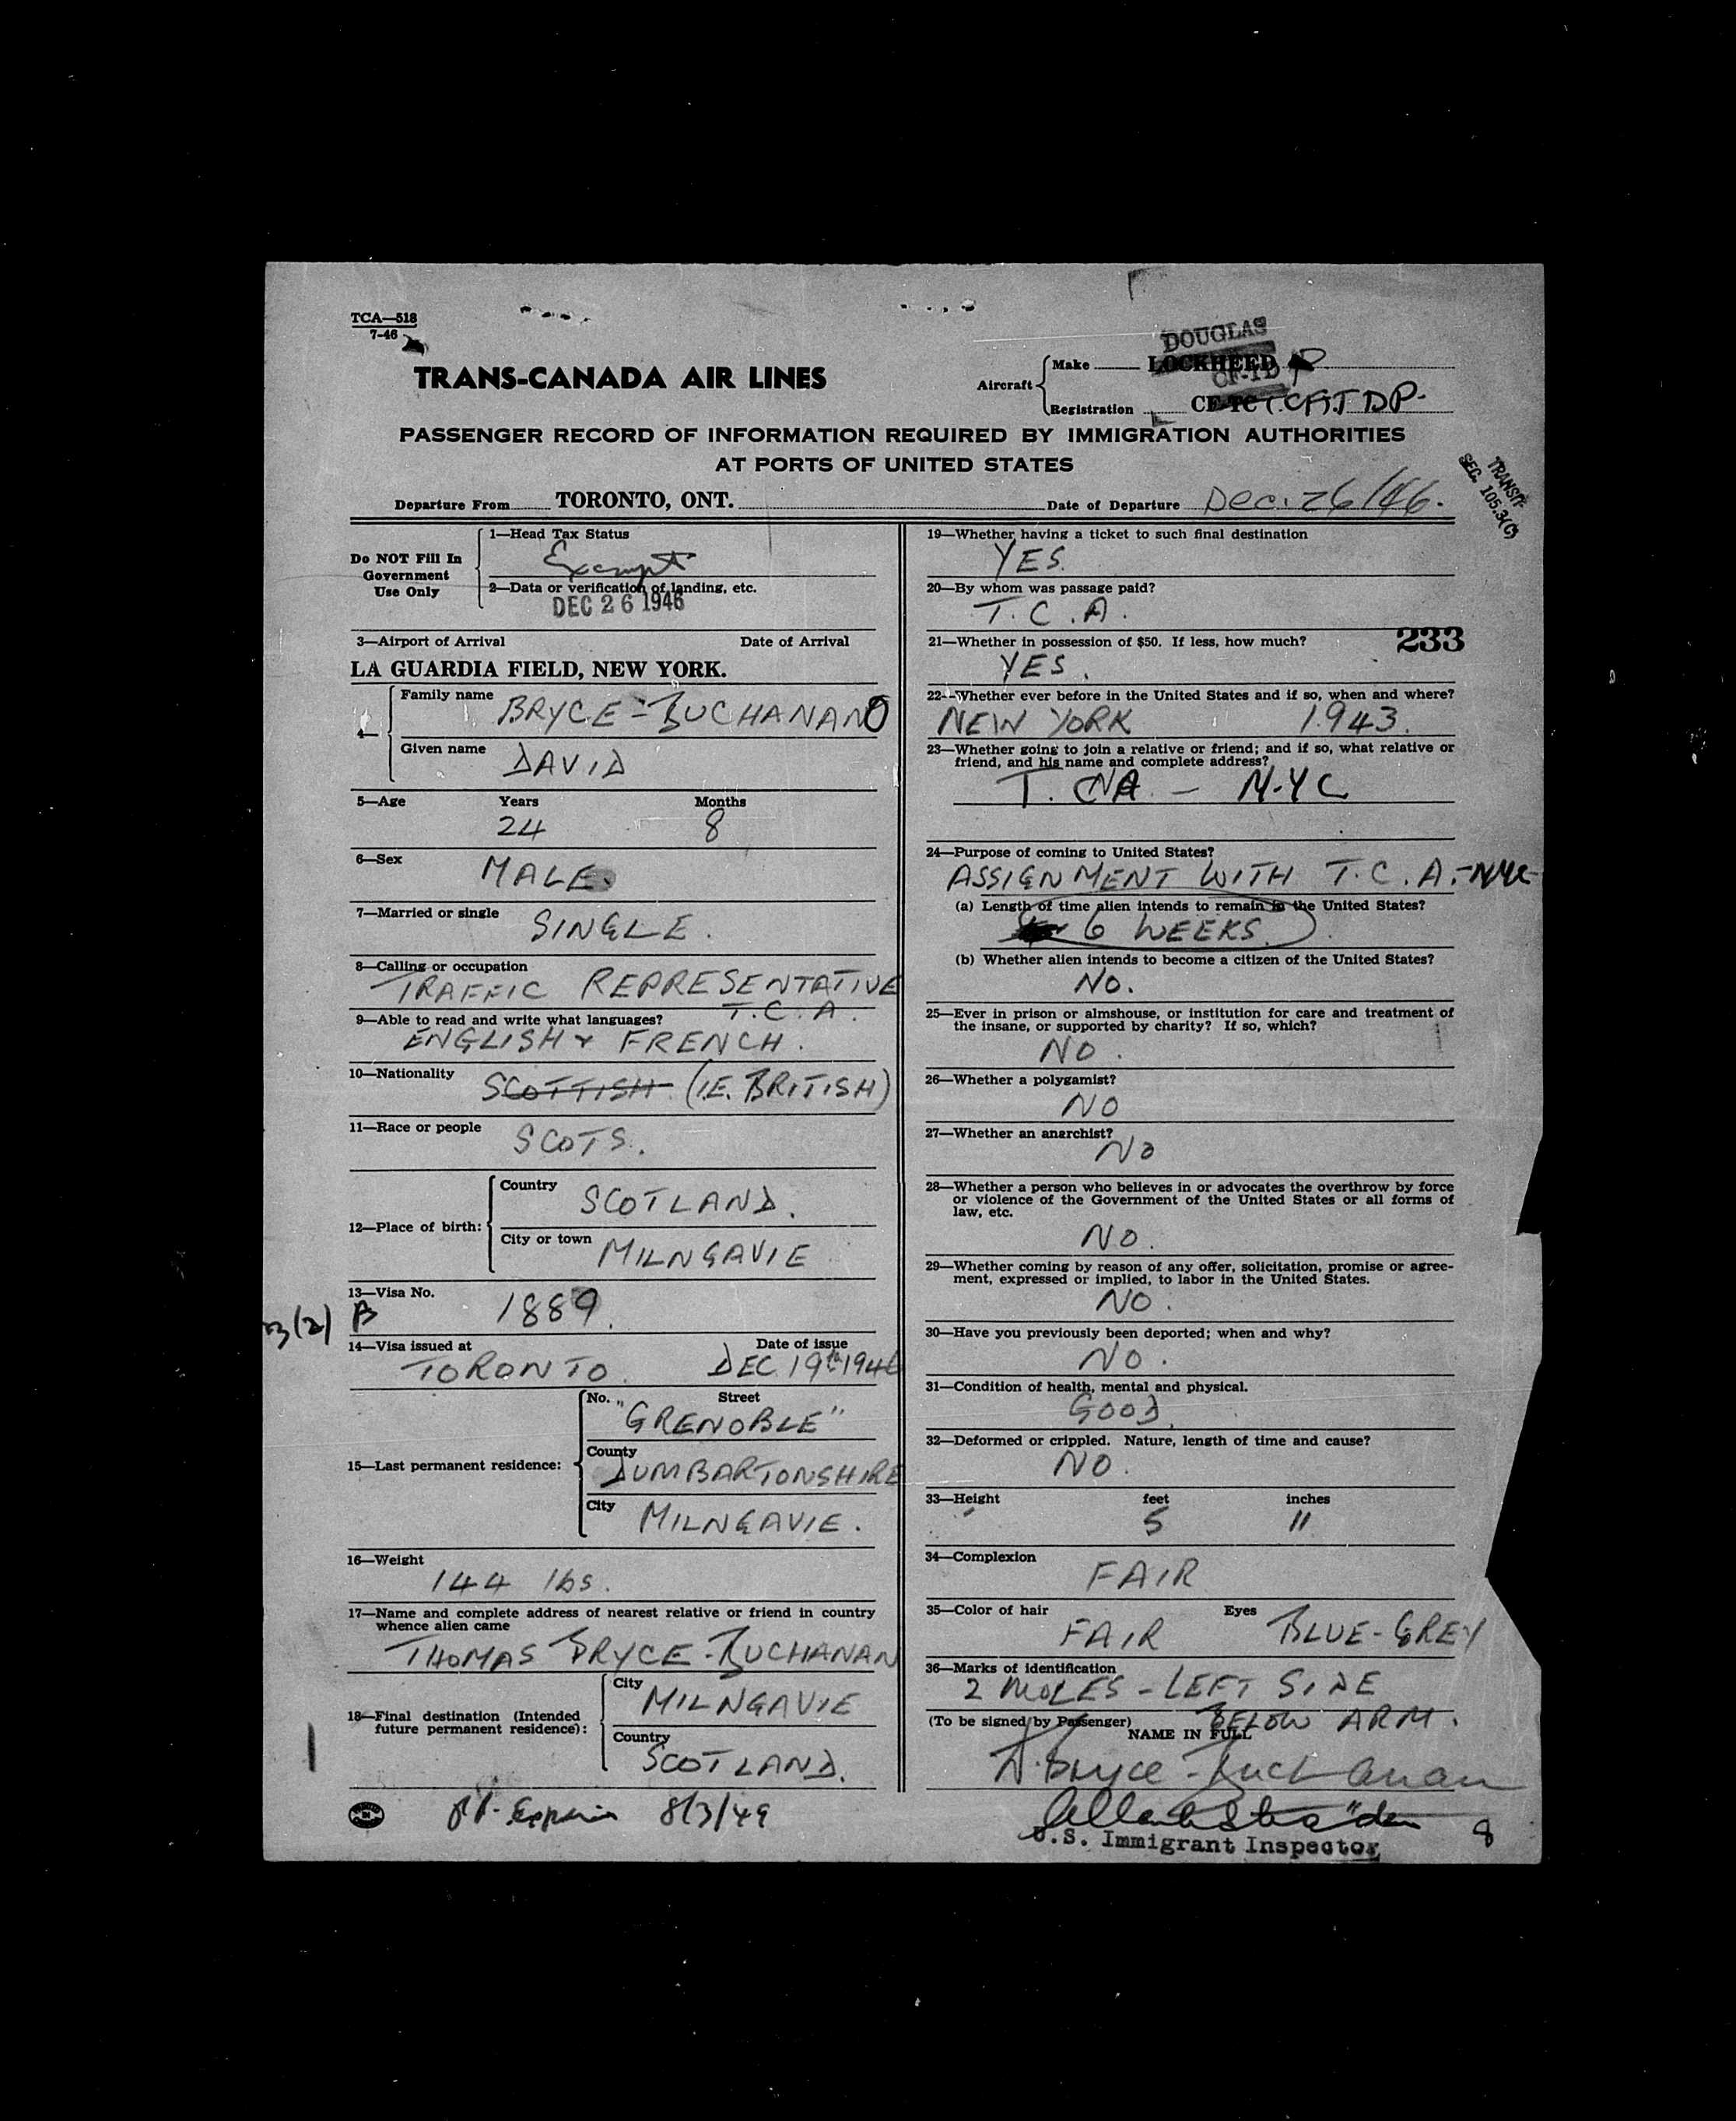 TCA—518
7-46
TRANS-CANADA AIR LINES
DOUGLAS
Aircraft
Make LOCKHEED
CF-TD P
Registration CF-TC
PASSENGER RECORD OF INFORMATION REQUIRED BY IMMIGRATION AUTHORITIES
AT PORTS OF UNITED STATES
TRANSIT
SEC. 105.3(C)
Departure From TORONTO, ONT. Date of Departure Dec. 26/46.
Do NOT Fill In
Government
Use Only
1—Head Tax Status
Exempt
2—Data or verification of landing, etc.
DEC 26 1946
3—Airport of Arrival Date of Arrival
LA GUARDIA FIELD, NEW YORK.
4—
Family name BRYCE-BUCHANAN
Given name DAVID
5—Age Years Months
24 8
6—Sex MALE.
7—Married or single SINGLE.
8—Calling or occupation
TRAFFIC REPRESENTATIVE
T.C.A.
9—Able to read and write what languages?
ENGLISH + FRENCH.
10—Nationality SCOTTISH (I.E. BRITISH)
11—Race or people SCOTS.
12—Place of birth:
Country SCOTLAND.
City or town MILNGAVIE
13—Visa No. 1889.
3(2) B
14—Visa issued at Date of issue
TORONTO. DEC 19th 1946
15—Last permanent residence:
No. Street
"GRENOBLE"
County
DUMBARTONSHIRE
City MILNGAVIE.
16—Weight
144 lbs.
17—Name and complete address of nearest relative or friend in country
whence alien came
THOMAS BRYCE-BUCHANAN
18—Final destination (Intended
future permanent residence):
City
MILNGAVIE
Country
SCOTLAND.
8/3/49
19—Whether having a ticket to such final destination
YES.
20—By whom was passage paid?
T.C.A.
21—Whether in possession of $50. If less, how much? 233
YES.
22—Whether ever before in the United States and if so, when and where?
NEW YORK 1943.
23—Whether going to join a relative or friend; and if so, what relative or
friend, and his name and complete address?
T. CNA. — N.Y.C
24—Purpose of coming to United States?
ASSIGNMENT WITH T.C.A.-NYC
(a) Length of time alien intends to remain in the United States?
6 WEEKS.
(b) Whether alien intends to become a citizen of the United States?
NO.
25—Ever in prison or almshouse, or institution for care and treatment of
the insane, or supported by charity? If so, which?
NO.
26—Whether a polygamist?
NO
27—Whether an anarchist?
NO
28—Whether a person who believes in or advocates the overthrow by force
or violence of the Government of the United States or all forms of
law, etc.
NO.
29—Whether coming by reason of any offer, solicitation, promise or agree-
ment, expressed or implied, to labor in the United States.
NO.
30—Have you previously been deported; when and why?
NO.
31—Condition of health, mental and physical.
GOOD.
32—Deformed or crippled. Nature, length of time and cause?
NO.
33—Height feet inches
5 11
34—Complexion
FAIR
35—Color of hair Eyes
FAIR BLUE-GREY
36—Marks of identification
2 MOLES - LEFT SIDE
BELOW ARM.
(To be signed by Passenger)
NAME IN FULL
D. Bryce-Buchanan
U.S. Immigrant Inspector
8